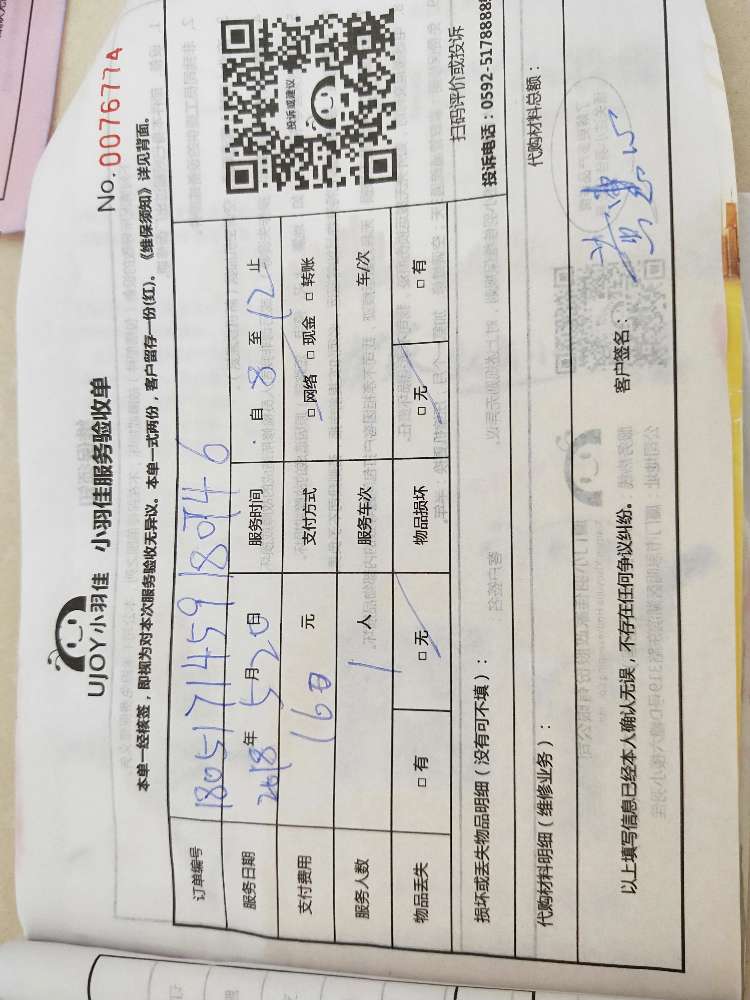 No. 0076774
UJOY小羽佳 小羽佳服务验收单
本单一经核签，即视为对本次服务验收无异议。本单一式两份，客户留存一份(红)。《维保须知》详见背面。
订单编号 1805171459180946
服务日期 2018年5月20日 服务时间 自 8 至 12 止
支付费用 160 元 支付方式 □网络 □现金 □转账
服务人数 1 人 服务车次 车/次
物品丢失 □有 □无 物品损坏 □无 □有
投诉或建议
扫码评价或投诉
投诉电话：0592-5178885
损坏或丢失物品明细（没有可不填）：
代购材料明细（维修业务）： 代购材料总额：
以上填写信息已经本人确认无误，不存在任何争议纠纷。 客户签名：